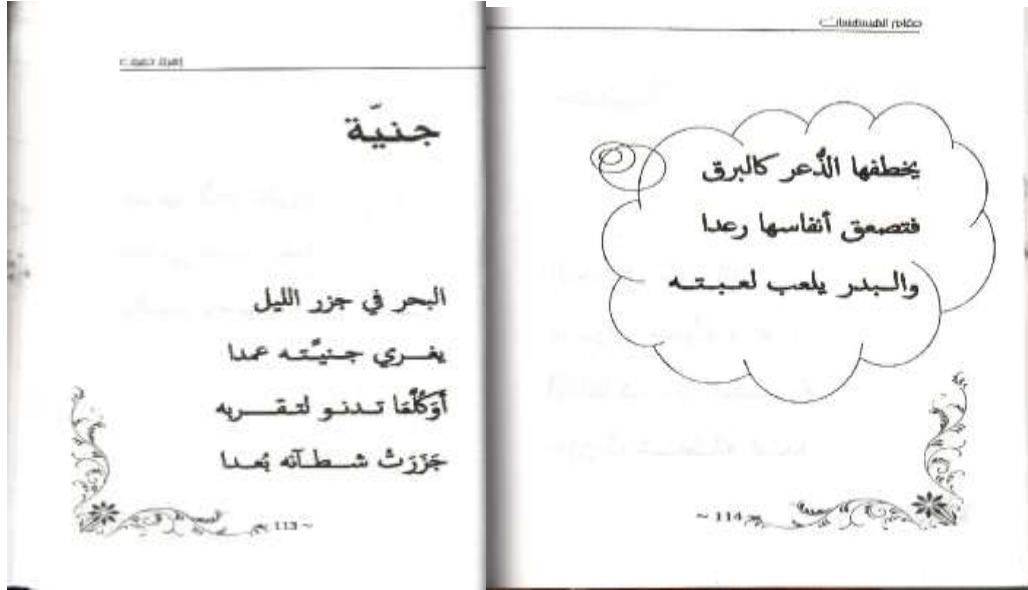 جنيّة
البحر في جزر الليل
يغـــري جـنيـَّـتـه عمدا
أوَكُلَّمَا تـدنـو لتـقـــربه
جَزَرَتْ شــطـآنه بُعـدا
~ 113 ~
مقام
يخطفها الذُّعر كالبرق
فتصعق أنفاسها رعدا
والـبـدر يلعب لعـبـتـه
~ 114 ~